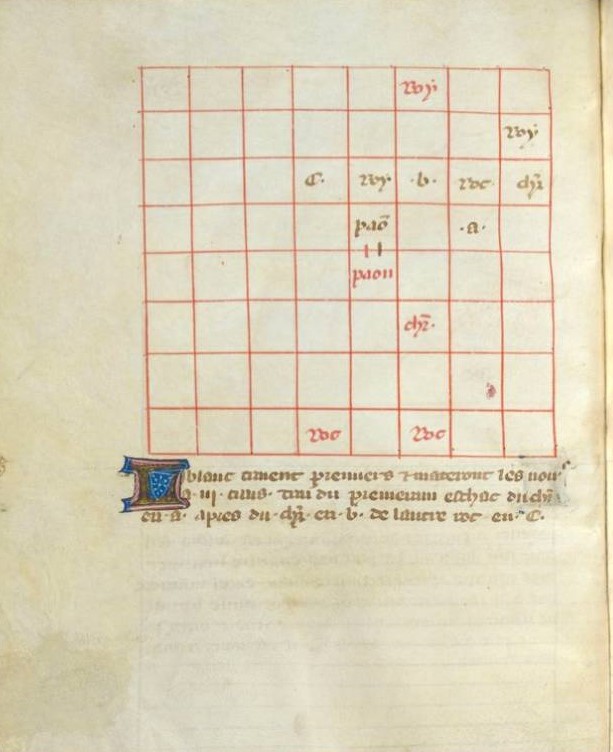 Roy
Roy
C. Roy. .b. Roc. chr̄
paō .a.
paon
chr̄.
Roc Roc
blanc traient premiers ⁊ materont les noirs
a .iij. trais. trai du premerain eschac du chr̄
en .a. apres du .chr̄. en .b. de lautre roc en .C.